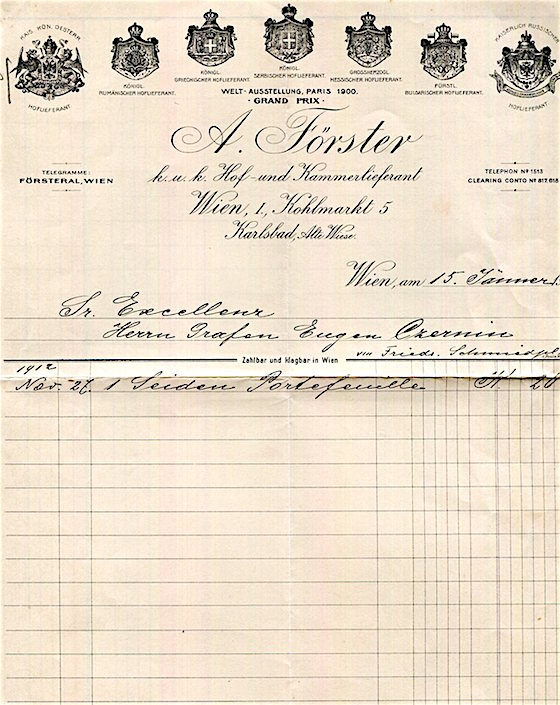 KAIS. KÖN. OESTERR.
HOFLIEFERANT.
KÖNIGL.
RUMÄNISCHER HOFLIEFERANT.
KÖNIGL.
GRIECHISCHER HOFLIEFERANT.
KÖNIGL.
SERBISCHER HOFLIEFERANT.
GROSSHERZOGL.
HESSISCHER HOFLIEFERANT.
FÜRSTL.
BULGARISCHER HOFLIEFERANT.
KAISERLICH RUSSISCHER
HOFLIEFERANT.
WELT-AUSSTELLUNG, PARIS 1900.
· GRAND PRIX ·
A. Förster
k. u. k. Hof- und Kammerlieferant
TELEGRAMME:
FÖRSTERAL, WIEN
TELEPHON No 1513
CLEARING CONTO No 817.618
Wien, I., Kohlmarkt 5
Karlsbad, Alte Wiese.
Wien, am 15. Jänner
Sr. Excellenz
Herrn Grafen Eugen Czernin
VIII Frieds. Schmiedpl.
Zahlbar und klagbar in Wien
1912
Nov. 27. 1 Seiden Portefeuille K 28